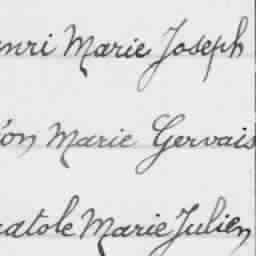 enri Marie Joseph
ón Marie Gervais
natole Marie Julien